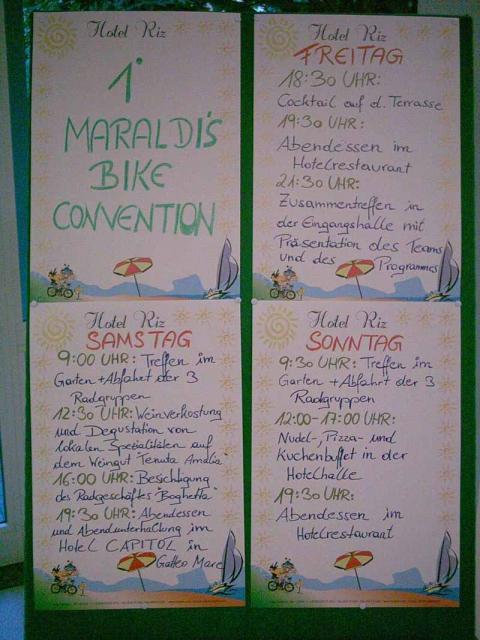 Hotel Riz
1°
MARALDI'S
BIKE
CONVENTION
Hotel Riz
FREITAG
18:30 UHR:
Cocktail auf d. Terrasse
19:30 UHR:
Abendessen im
Hotelrestaurant
21:30 UHR:
Zusammentreffen in
der Eingangshalle mit
Präsentation des Teams
und des Programmes
Hotel Riz
SAMSTAG
9:00 UHR: Treffen im
Garten + Abfahrt der 3
Radgruppen
12:30 UHR: Weinverkostung
und Degustation von
lokalen Spezialitäten auf
dem Weingut "Tenuta Amalia"
16:00 UHR: Besichtigung
des Radgeschäftes "Boghetta"
19:30 UHR: Abendessen
und Abendunterhaltung im
Hotel CAPITOL in
Gatteo Mare
Hotel Riz
SONNTAG
9:30 UHR: Treffen im
Garten + Abfahrt der 3
Radgruppen
12:00-17:00 UHR:
Nudel-, Pizza- und
Kuchenbuffet in der
Hotelhalle
19:30 UHR:
Abendessen im
Hotelrestaurant